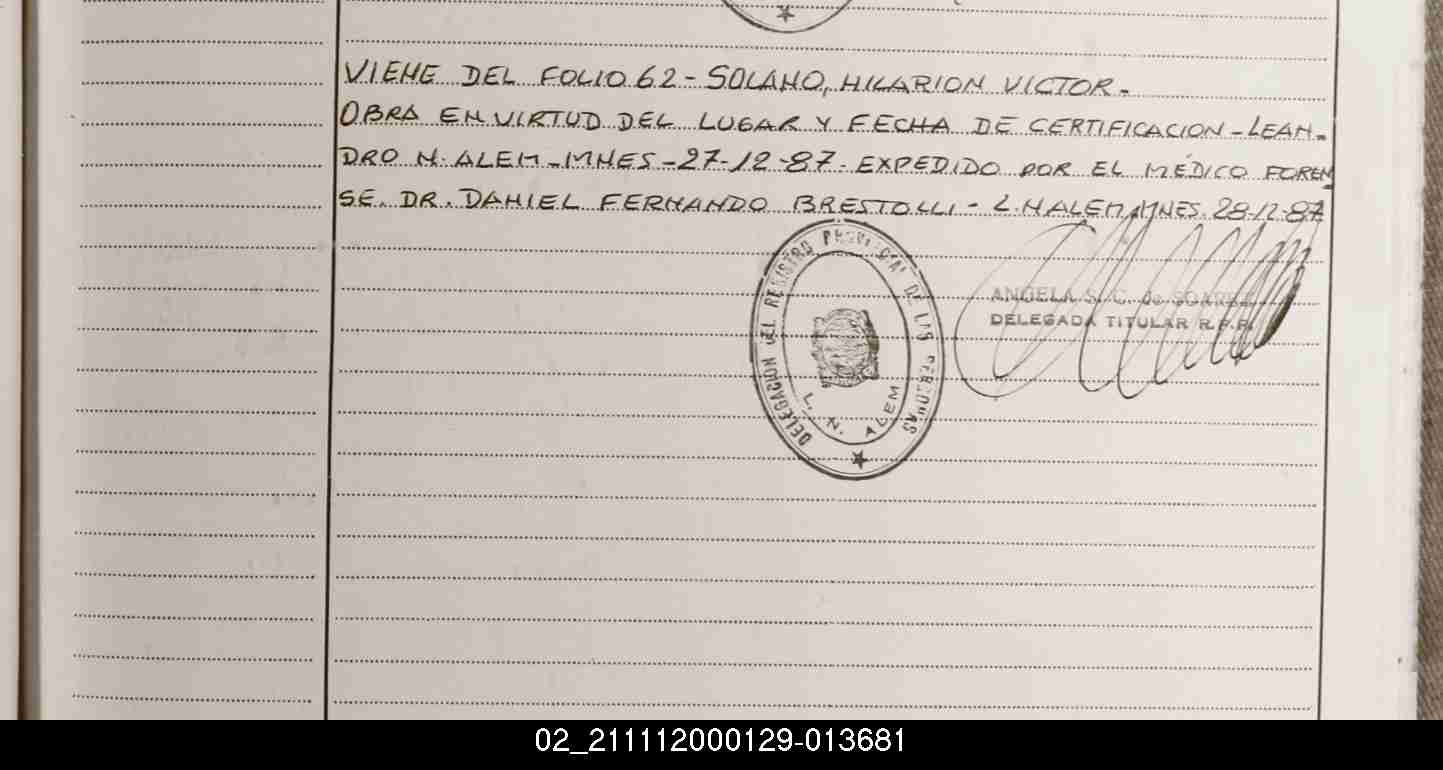 VIENE DEL FOLIO 62 - SOLANO, HILARION VICTOR -
OBRA EN VIRTUD DEL LUGAR Y FECHA DE CERTIFICACION - LEAN-
DRO N. ALEM - MNES - 27-12-87 - EXPEDIDO POR EL MÉDICO FOREN
SE. DR. DANIEL FERNANDO BRESTOLLI - L.N ALEM, MNES. 28-12-87
DELEGACION DEL REGISTRO PROVINCIAL DE LAS PERSONAS
L. N. ALEM
ANGELA S. C. de
DELEGADA TITULAR R.P.P.
02_211112000129-013681